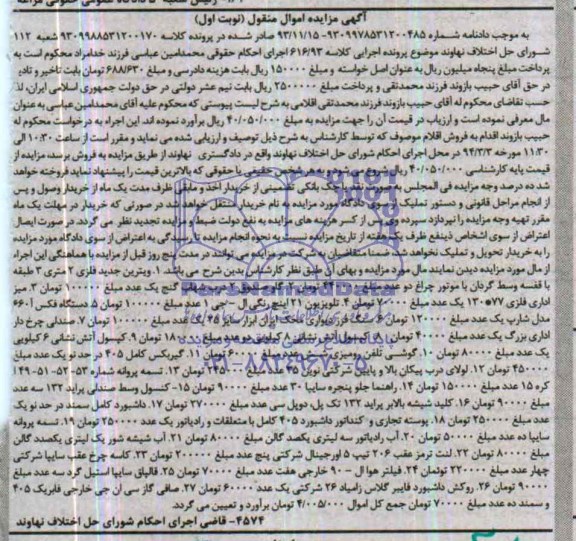 آگهی مزایده اموال منقول (نوبت اول)
به موجب دادنامه شماره ۹۳۰۹۹۷۸۵۳۱۳۰۰۴۸۵-۹۳/۱۱/۱۵ صادر شده در پرونده کلاسه ۹۳۰۹۹۸۸۵۳۱۲۰۰۱۷۰ شعبه ۱۱۲
شورای حل اختلاف نهاوند موضوع پرونده اجرایی کلاسه ۶۱۶/۹۳ اجرای احکام حقوقی محمدامین عباسی فرزند خدامراد محکوم است به
پرداخت مبلغ پنجاه میلیون ریال به عنوان اصل خواسته و مبلغ ۱۵۰۰۰۰ ریال بابت هزینه دادرسی و مبلغ ۶۸۸/۶۳۰ تومان بابت تاخیر و تادیه
در حق آقای حبیب بازوند فرزند محمدتقی و پرداخت مبلغ ۲۵۰۰۰۰۰ ریال بابت نیم عشر دولتی در حق دولت جمهوری اسلامی ایران، لذا
حسب تقاضای محکوم له آقای حبیب بازوند فرزند محمدتقی اقلامی به شرح لیست پیوستی که محکوم علیه آقای محمدامین عباسی به عنوان
مال معرفی نموده است و ارزیاب در قیمت آن را جهت مزایده به مبلغ ۴۰/۰۵۰/۰۰۰ ریال برآورد نموده اند. این اجراء به درخواست محکوم له
حبیب بازوند اقدام به فروش اقلام موصوف که توسط کارشناس به شرح ذیل توصیف و ارزیابی شده می نماید و مقرر است از ساعت ۱۰:۳۰ الی
۱۱:۳۰ مورخه ۹۴/۳/۳ در محل اجرای احکام شورای حل اختلاف نهاوند واقع در دادگستری نهاوند از طریق مزایده به فروش برسد، مزایده از
قیمت پایه کارشناسی ۴۰/۰۵۰/۰۰۰ ریال شروع حقیقی یا حقوقی که بالاترین قیمت را پیشنهاد نماید فروخته خواهد
شد ده درصد وجه مزایده فی المجلس به صورت چک بانکی تضمینی از خریدار اخذ و مابقی ظرف مدت یک ماه از خریدار وصول و پس
از انجام مراحل قانونی و دستور تملیک از سوی دادگاه مورد مزایده به نام خریدار منتقل خواهد شد. در صورتی که خریدار در مهلت یک ماه
مقرر بقیه وجه مزایده را نپردازد سپرده وی پس از کسر هزینه های مزایده به نفع دولت ضبط و مزایده تجدید نظر می گردد. در صورت ایصال
اعتراض از سوی اشخاص ذینفع ظرف یک هفته از تاریخ مزایده نسبت به نحوه انجام مزایده رسیدگی به اعتراض از سوی دادگاه مورد مزایده
به خریدار تحویل و تملیک نخواهد شد. ضمنا متقاضیان به شرکت در مزایده می توانند در مدت پنج روز قبل از مزایده با هماهنگی این اجراء
از مال مورد مزایده دیدن نمایند مال مورد مزایده و بهای آن طبق نظر کارشناس بدین شرح می باشد ۱. ویترین جدید فلزی ۲ متری ۳ طبقه
با قفسه وسط گردان با موتور چراغ دو عدد مبلغ یک عدد مبلغ ۱۰۰۰۰۰ تومان ۳. میز
اداری فلزی ۷۷*۱۳۰ یک عدد مبلغ تومان ۴. تلویزیون ۲۱ اینچ رنگی ال جی ۱ عدد مبلغ ۱۰۰۰۰۰ تومان ۵. دستگاه فکس ۶۶۰
مدل شارپ یک عدد مبلغ ۱۲۰۰۰۰ تومان یک عدد مبلغ ۱۰۰۰۰۰ تومان ۷. صندلی چرخ دار
اداری بزرگ یک عدد مبلغ ۴۰۰۰۰ تومان ۹. کپسول آتش نشانی ۶ کیلویی
یک عدد مبلغ ۸۰۰۰۰ تومان ۱۰. گوشی تلفن رومیزی مبلغ ۶۰۰۰۰ تومان ۱۱. گیربکس کامل ۴۰۵ در حد نو یک عدد مبلغ
۴۵۰۰۰۰ تومان ۱۲. لولای درب پیکان بالا و پایین شرکتی تومان ۱۳. تسمه پروانه شماره ۵۳-۵۲-۵۱-۴۹
کره ۱۵ عدد مبلغ ۱۵۰۰۰۰ تومان ۱۴. راهنما جلو پنجره سایپا ۳۰ عدد مبلغ ۹۰۰۰۰ تومان ۱۵- کنسول وسط صندلی پراید ۱۳۲ سه عدد
مبلغ ۹۰۰۰۰ تومان ۱۶. کلید شیشه بالابر پراید ۱۳۲ تک پل، دوپل سی عدد مبلغ ۲۷۰۰۰۰ تومان ۱۷. داشبورد کامل سمند در حد نو یک
عدد مبلغ ۲۵۰۰۰۰ تومان ۱۸. پوسته تجاری و کنداتور داشبورد ۴۰۵ کامل با متعلقات و رادیاتور یک عدد ۲۵۰۰۰۰ تومان ۱۹. تسمه پروانه
سایپا ده عدد مبلغ ۵۰۰۰۰ تومان ۲۰. آب رادیاتور سه لیتری یکصد گالن مبلغ ۸۰۰۰۰ تومان ۲۱. آب شیشه شور یک لیتری یکصد گالن
مبلغ ۸۰۰۰۰ تومان ۲۲. لنت ترمز عقب ۲۰۶ تیپ ۵ اورجینال شرکتی پنج عدد مبلغ ۲۰۰۰۰۰ تومان ۲۳. کاسه چرخ عقب سایپا شرکتی
چهار عدد مبلغ ۲۲۰۰۰۰ تومان ۲۴. فیلتر هوا ال ۹۰- خارجی هفت عدد مبلغ ۷۰۰۰۰ تومان ۲۵. قالپاق سایپا استیل گرد سه عدد مبلغ
۹۰۰۰۰ تومان ۲۶. روکش داشبورد فایبر گلاس زامیاد ۲۶ شرکتی یک عدد ۶۰۰۰۰ تومان ۲۷. صافی گاز سی ان جی خارجی فابریک ۴۰۵
و سمند ده عدد مبلغ ۷۰۰۰۰ تومان جمع کل اموال ۴/۰۰۵/۰۰۰ تومان برآورد و تعیین می گردد.
۴۵۷۴- قاضی اجرای احکام شورای حل اختلاف نهاوند